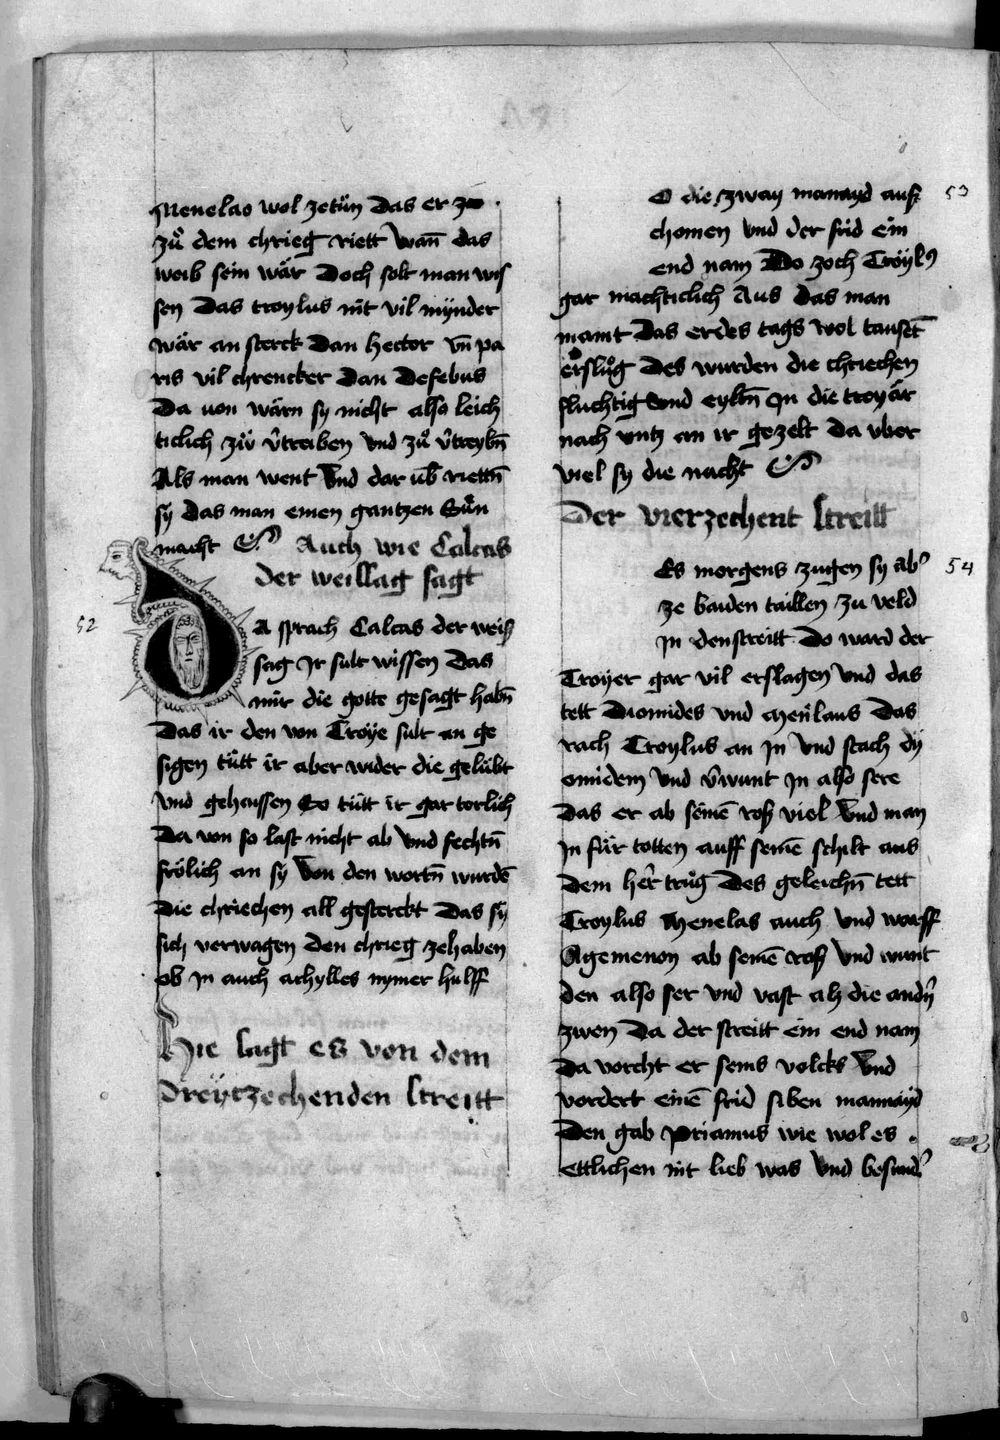 Menelao wol zetün das er zo
zů dem chrieg riett wan̄ das
weib sein wär Doch solt man wis
sen Das troylus nit vil mÿnder
wär an sterck Dan hector vn̄ pa
ris vil chrencker Dan Defebus
Da uon wärn sy nicht also leich
ticlich zů v̂treiben vnd zů v̂treybn̄
Als man went Vnd dar vb̄ riettn̄
sy das man einen gantzen Sün
macht Auch wie Calcas
der weissag sagt
52
DA sprach Calcas der weis
sag Ir sult wissen Das
mir die gotte gesagt habn̄
Das ir den von Troÿe sult an ge
sigen tütt ir aber wider die gelübt
vnd gehaissen So tütt ir gar torlich
Da von so last nicht ab vnd fechtn̄
frölich an sy Von den wortn̄ wurdē
die chriechen all gesterckt Das sy
sich verwagen den chrieg zehaben
ob In auch achylles nymer hulff
Hie sagt es von dem
Dreÿtzechenden streitt
53
O die zway manayd aus
chomen vnd der frid ein
end nam Do zoch Troÿlꝰ
gar mächticlich Aus das man
mamt Das er des tags wol tausēt
erslůg Des wurden die chriechen
fluchtig Vnd eyltn̄ In die troyär
nach vntz an ir gezelt da vber
viel sy die nacht
Der vierzechent streitt
54
Es morgens zugen sy ab̉
ze baiden taillen zu veld
In den streitt Do ward der
Troyer gar vil erslagen vnd das
tett Diomides vnd Menlaus Das
rach Troylus an In vnd stach dÿ
omidem vnd v̂wunt In also sere
Das er ab seinē ros viel Vnd man
In für totten auff seinē schilt aus
dem her trůg Des geleichn̄ tett
Troylus Menelas auch vnd warff
Agemenon ab seinē ros vnd wunt
den also ser vnd vast als die andn̉
zwen Da der streitt ein end nam
Da vorcht er seins volcks Vnd
vordert einē frid siben mannayd
Den gab priamus wie wol es
ettlichen nit lieb was Vnd besund̉